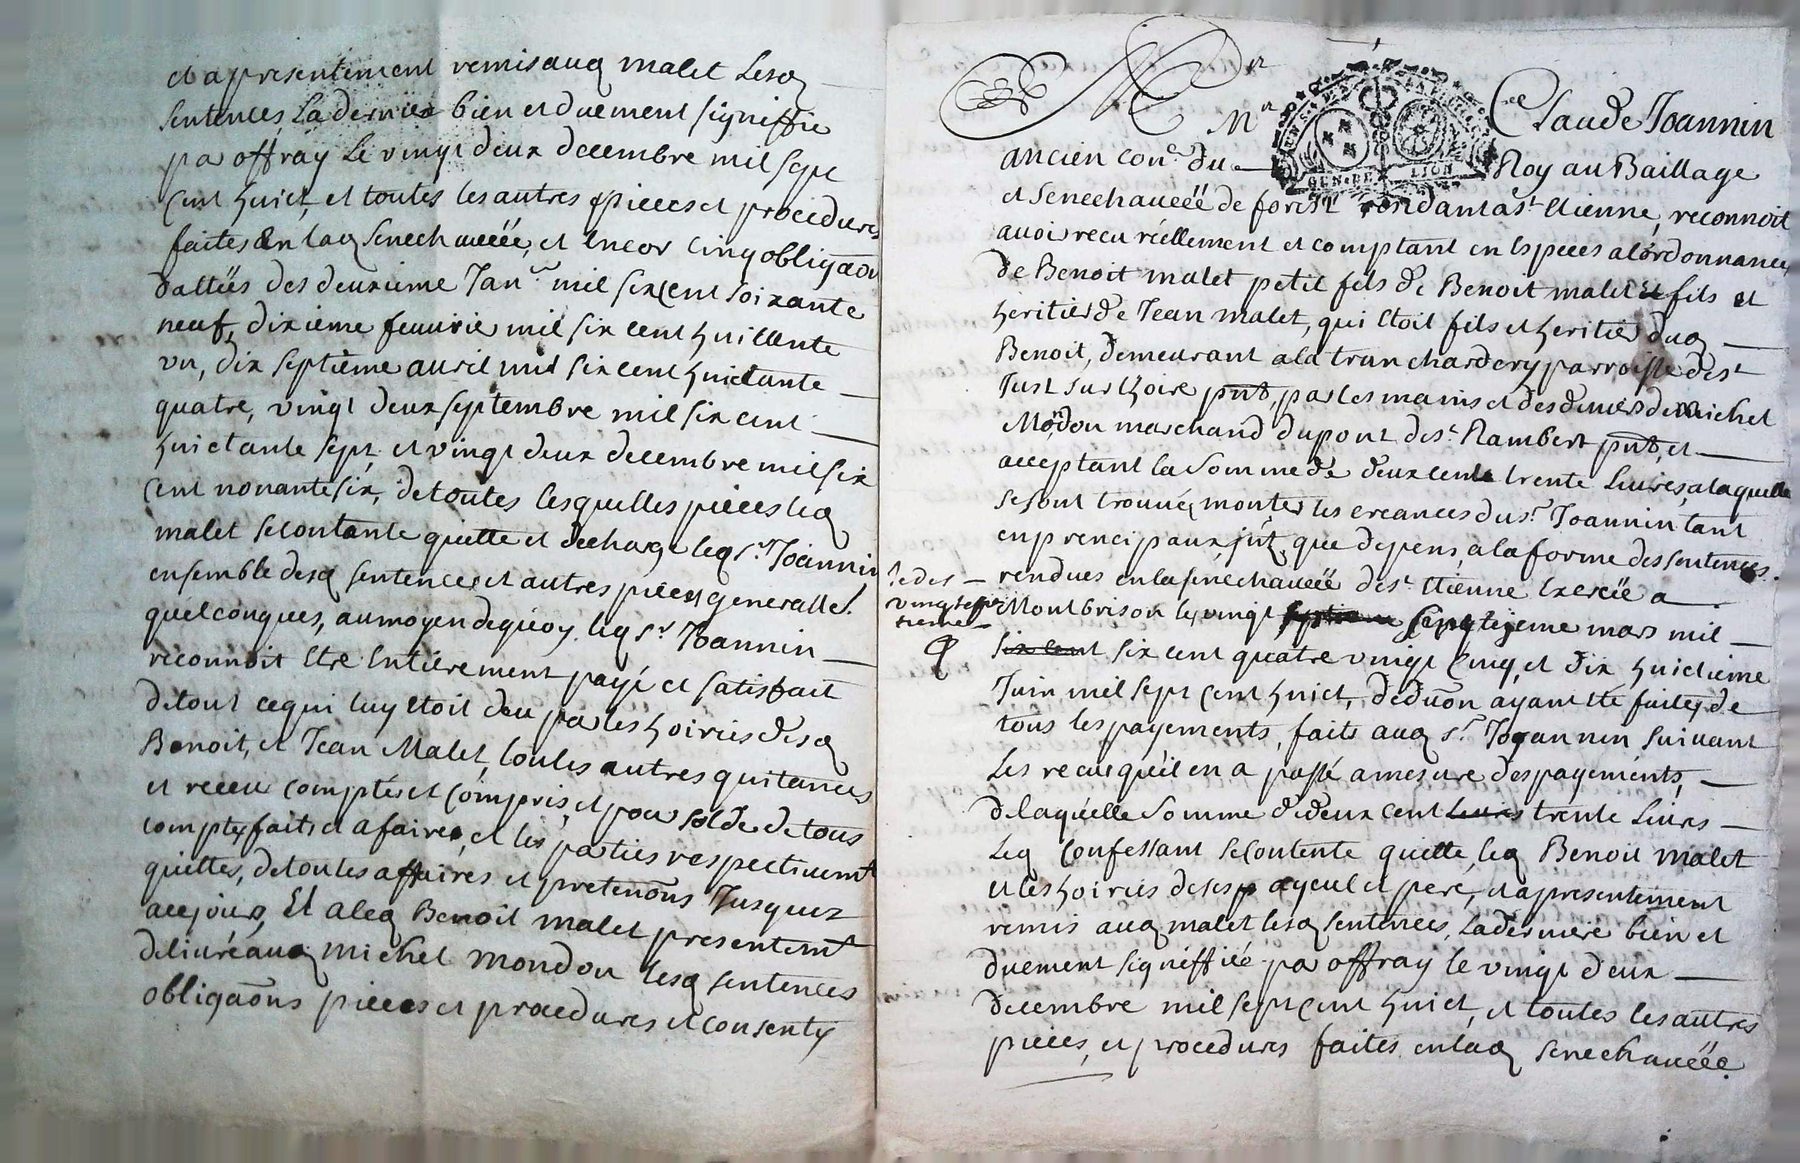 et apresentement remis auq malet lesq
sentences, la derniere bien et duement signiffie
par offray le vingt deux decembre mil sept
cent huict, et toutes les autres pieces et procedures
faites en laq senechaucéé, et encor cinq obligãons
dattéés des deuxieme Jan.er mil six cent soixante
neuf, dixieme feuurier mil six cent huictante
vn, dix septieme auril mil six cent huictante
quatre, vingt deux septembre mil six cent
huictante sept, et vingt deux decembre mil six
cent nonante six, de toutes lesquelles pieces leq
malet se contante quitte et decharge leq s.r Joannin
ensemble desq sentences et autres pieces generalle.
quelconques, au moyen dequoy leq s.r Joannin
reconnoit etre entierement payé et satisfait
de tout ce qui luy etoit deu par les hoiries desq
Benoit, et Jean Malet, toutes autres quitances
et receu comptés et compris, et pour solde de tous
comptes faits et a faires, et les parties respectiuemt
quittes, de toutes affaires et pretenõns Jusques
acejour, Et aleq Benoit malet presentemt
deliuré auq michel mondon lesq sentences
obligaõns pieces et procedures et consenty
M.r
M.r Claude Joannin
GEN.DE LION
ancien con.er du Roy au Baillage
et Senechaucéé de forest residant a s.t Etienne, reconnoit
auoir receu réellement et comptant en Especes a lordonnance
de Benoit malet petit fils de Benoit malet et fils et
heritier de Jean malet, qui etoit fils et heritier duq
Benoit, demeurant a la tranchardery parroisse de s.t
Just sur Loire pñt, par les mains et des deniers de michel
Mondon marchand du pont de s.t Rambert pñt, et
acceptant la somme de deux cents trente Liures, a laquelle
se sont trouués montés les creances du s.r Joannin tant
en prencipaux, jnt, que depens, a la forme des sentences
rendues en la senechaucéé de s.t Etienne Exercéé a
Montbrison les vingt septieme septieme mars mil
ledes
vingt sep
tieme
six cent six cent quatre vingt cinq, et dix huictieme
Juin mil sept cent huict, deduõn ayant eté faites de
tous les payements, faits auq s.r Joannin suiuant
Les receu quéil en a passé a mesure des payements,
de laquelle somme de deux cent Liures trente Liures
Leq Confessant se contente quitte, leq Benoit malet
et les hoiries de ses ayeul et pere, et apresentement
remis auq malet lesq sentences, la derniere bien et
duement signéffiéé par offray le vingt deux
decembre mil sept cent huict, et toutes les autres
pieces, et procedures faites en laq senechaucéé.